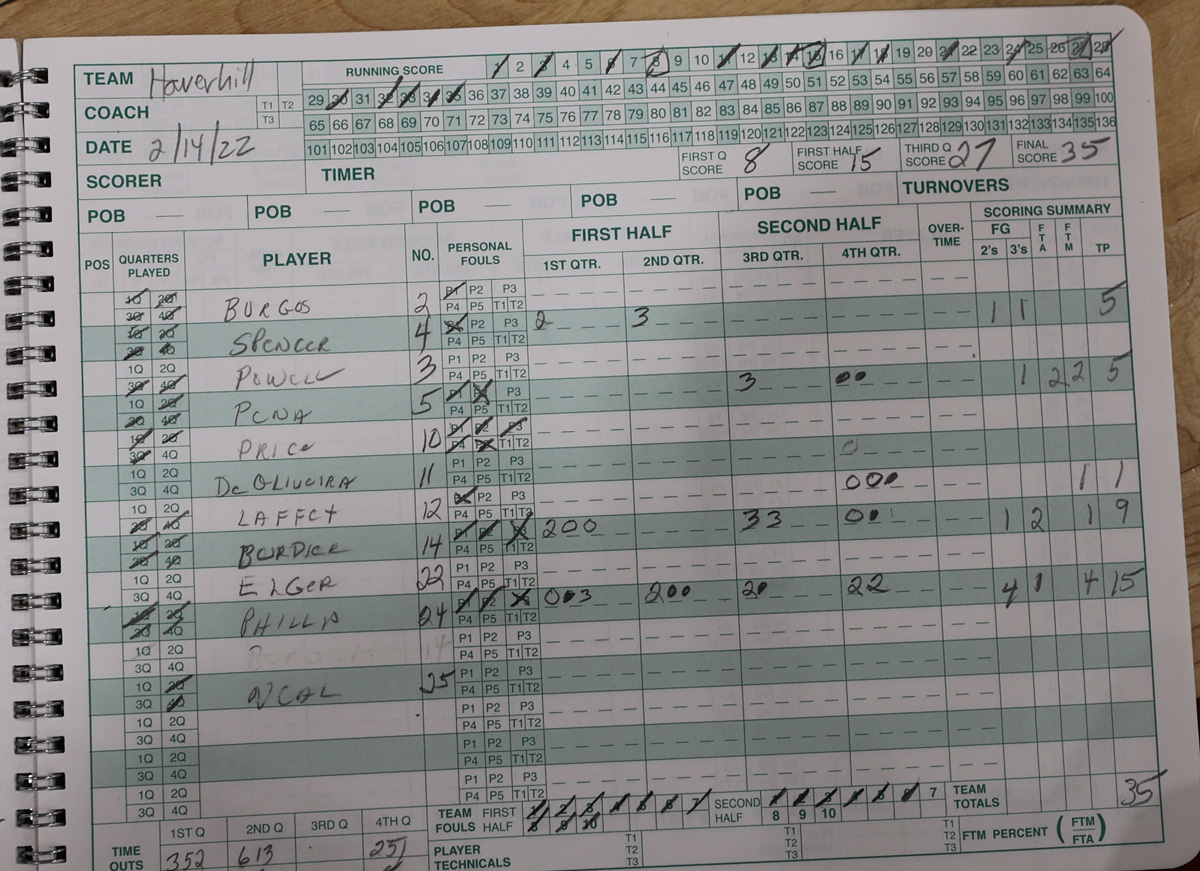 TEAM Haverhill
RUNNING SCORE 1 2 3 4 5 6 7 8 9 10 11 12 13 14 15 16 17 18 19 20 21 22 23 24 25 26 27 28
29 30 31 32 33 34 35 36 37 38 39 40 41 42 43 44 45 46 47 48 49 50 51 52 53 54 55 56 57 58 59 60 61 62 63 64
COACH T1 T2 T3
65 66 67 68 69 70 71 72 73 74 75 76 77 78 79 80 81 82 83 84 85 86 87 88 89 90 91 92 93 94 95 96 97 98 99 100
101 102 103 104 105 106 107 108 109 110 111 112 113 114 115 116 117 118 119 120 121 122 123 124 125 126 127 128 129 130 131 132 133 134 135 136
DATE 2/14/22
FIRST Q SCORE 8 FIRST HALF SCORE 15 THIRD Q SCORE 27 FINAL SCORE 35
SCORER TIMER
POB — POB — POB — POB — POB — TURNOVERS
POS QUARTERS PLAYED PLAYER NO. PERSONAL FOULS FIRST HALF 1ST QTR. 2ND QTR. SECOND HALF 3RD QTR. 4TH QTR. OVER-TIME SCORING SUMMARY FG 2's 3's FTA FTM TP
1Q 2Q BURGOS 2 P1 P2 P3
3Q 4Q P4 P5 T1 T2 2 3 1 1 5
1Q 2Q SPENCER 4 P1 P2 P3
3Q 4Q P4 P5 T1 T2
1Q 2Q POWELL 3 P1 P2 P3
3Q 4Q P4 P5 T1 T2 3 1 2 2 5
1Q 2Q PENA 5 P1 P2 P3
3Q 4Q P4 P5 T1 T2
1Q 2Q PRICE 10 P1 P2 P3
3Q 4Q P4 P5 T1 T2
1Q 2Q DeOLIVEIRA 11 P1 P2 P3
3Q 4Q P4 P5 T1 T2 1 1
1Q 2Q LAFFEY 12 P1 P2 P3
3Q 4Q P4 P5 T1 T2 200 33 1 2 1 9
1Q 2Q BURDIER 14 P1 P2 P3
3Q 4Q P4 P5 T1 T2
1Q 2Q ELGER 22 P1 P2 P3
3Q 4Q P4 P5 T1 T2 003 200 20 22 4 1 4 15
1Q 2Q PHILLIP 24 P1 P2 P3
3Q 4Q P4 P5 T1 T2
1Q 2Q P1 P2 P3
3Q 4Q P4 P5 T1 T2
1Q 2Q NEAL 25 P1 P2 P3
3Q 4Q P4 P5 T1 T2
1Q 2Q P1 P2 P3
3Q 4Q P4 P5 T1 T2
1Q 2Q P1 P2 P3
3Q 4Q P4 P5 T1 T2
1Q 2Q P1 P2 P3
3Q 4Q P4 P5 T1 T2
TEAM FOULS FIRST HALF 1 2 3 4 5 6 7 8 9 10 SECOND HALF 1 2 3 4 5 6 7 8 9 10 TEAM TOTALS 35
TIME OUTS 1ST Q 352 2ND Q 613 3RD Q 4TH Q 251
PLAYER TECHNICALS T1 T2 T3 T1 T2 T3 T1 T2 T3 FTM PERCENT (FTM/FTA)